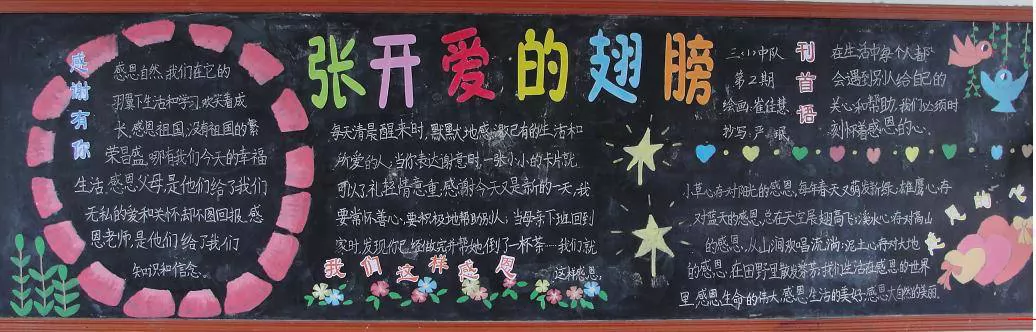 张开爱的翅膀
感谢有你
感恩自然,我们在它的
羽翼下生活和学习,欢笑着成
长,感恩祖国,没有祖国的繁
荣昌盛,哪有我们今天的幸福
生活,感恩父母,是他们给了我们
无私的爱和关怀却不图回报,感
恩老师,是他们给了我们
知识和信念。
每天清晨醒来时,默默地感谢已有的生活和
所爱的人,当你表达谢意时,一张小小的卡片就
可以了,礼轻情意重,感谢今天又是新的一天,我
要常怀善心,要积极地帮助别人,当母亲下班回到
家时,发现你已经做完并帮她倒了一杯茶……我们就
这样感恩。
我们这样感恩
三〈1〉中队
第2期
绘画:崔佳慧
抄写:严
刊首语
在生活中每个人都
会遇到别人给自己的
关心和帮助,我们必须时
刻怀着感恩的心。
小草心存对阳光的感恩,每年春天又萌发新绿;雄鹰心存
对蓝天的感恩,总在天空展翅高飞;溪水心存对高山
的感恩,从山涧欢唱流淌;泥土心存对大地
的感恩,在田野里散发芬芳;我们生活在感恩的世界
里,感恩生命的伟大,感恩生活的美好,感恩大自然的美丽。
恩的心